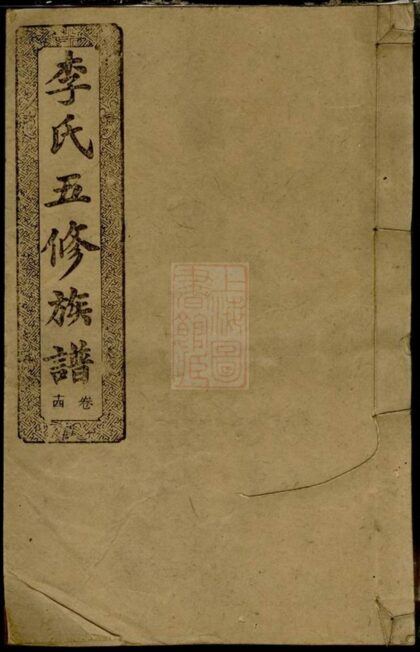 李氏五修族譜
卷十四
上海圖
書館藏